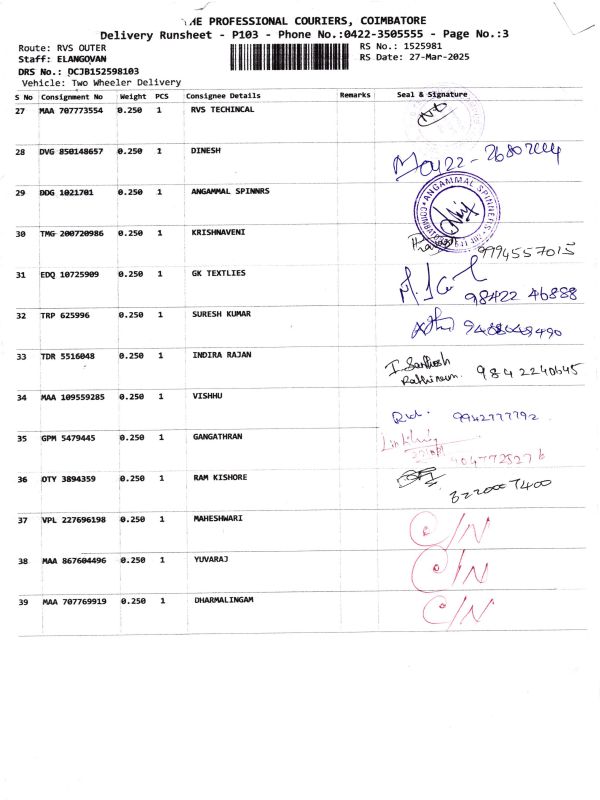 THE PROFESSIONAL COURIERS, COIMBATORE
Delivery Runsheet - P103 - Phone No.:0422-3505555 - Page No.:3
Route: RVS OUTER
RS No.: 1525981
Staff: ELANGOVAN
RS Date: 27-Mar-2025
DRS No.: DCJB152598103
Vehicle: Two Wheeler Delivery
S No Consignment No Weight PCS Consignee Details Remarks Seal & Signature
27 MAA 707773554 0.250 1 RVS TECHINCAL
28 DVG 850148657 0.250 1 DINESH
29 DDG 1021701 0.250 1 ANGAMMAL SPINNRS
ANGAMMAL SPINNERS
30 TMG 200720986 0.250 1 KRISHNAVENI
9994557015
31 EDQ 10725909 0.250 1 GK TEXTLIES
98422 46888
32 TRP 625996 0.250 1 SURESH KUMAR
33 TDR 5516048 0.250 1 INDIRA RAJAN
34 MAA 109559285 0.250 1 VISHHU
9942777792
35 GPM 5479445 0.250 1 GANGATHRAN
36 OTY 3894359 0.250 1 RAM KISHORE
37 VPL 227696198 0.250 1 MAHESHWARI C/N
38 MAA 867604496 0.250 1 YUVARAJ C/N
39 MAA 707769919 0.250 1 DHARMALINGAM C/N